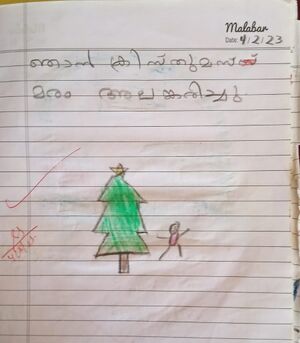 Malabar
Date: 4/2/23
ഞാൻ ക്രിസ്തുമസ്
മരം അലങ്കരിച്ചു